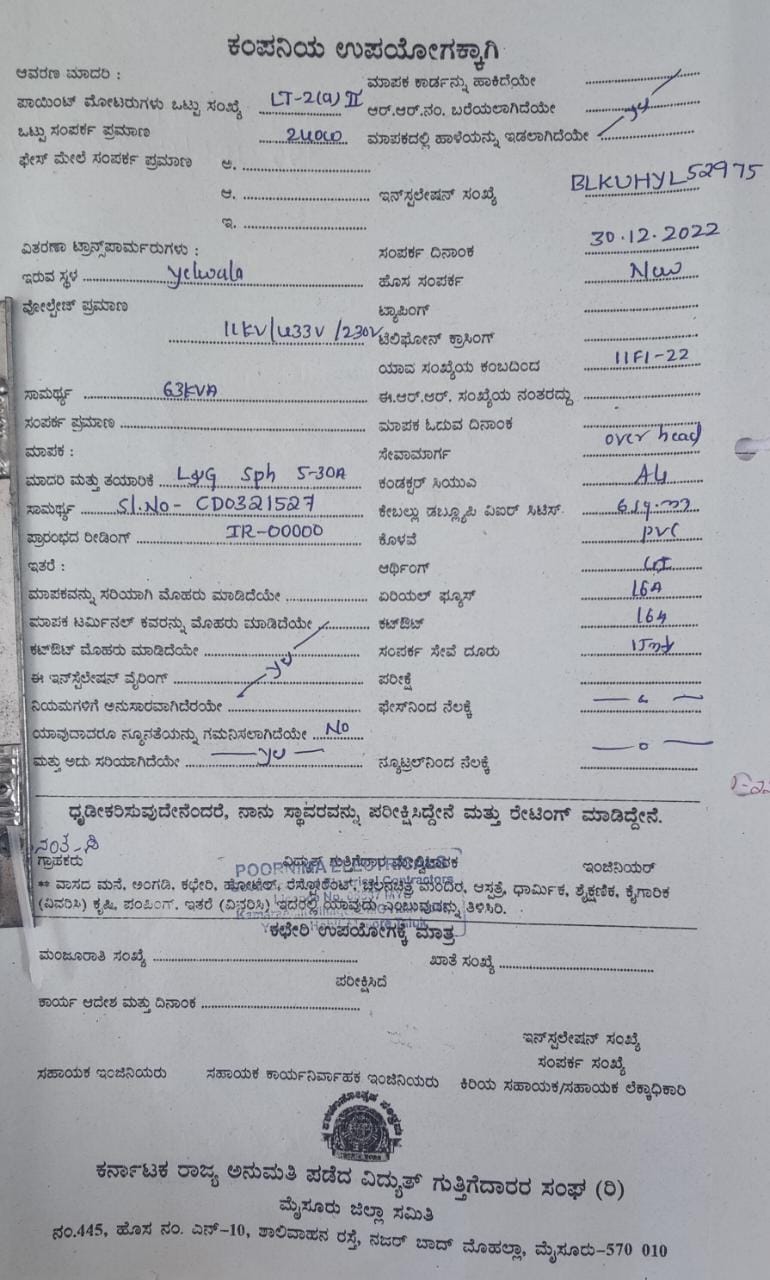 ಕಂಪನಿಯ ಉಪಯೋಗಕ್ಕಾಗಿ
ಆವರಣ ಮಾದರಿ : ಮಾಪಕ ಕಾರ್ಡನ್ನು ಹಾಕಿದೆಯೇ
ಪಾಯಿಂಟ್ ಮೋಟರುಗಳು ಒಟ್ಟು ಸಂಖ್ಯೆ LT-2(a) II ಆರ್.ಆರ್.ನಂ. ಬರೆಯಲಾಗಿದೆಯೇ
ಒಟ್ಟು ಸಂಪರ್ಕ ಪ್ರಮಾಣ ಮಾಪಕದಲ್ಲಿ ಹಾಳೆಯನ್ನು ಇಡಲಾಗಿದೆಯೇ
ಫೇಸ್ ಮೇಲೆ ಸಂಪರ್ಕ ಪ್ರಮಾಣ ಅ.
ಆ. ಇನ್‌ಸ್ಟಲೇಷನ್ ಸಂಖ್ಯೆ BLKUHYL52975
ಇ.
ವಿತರಣಾ ಟ್ರಾನ್ಸ್‌ಪಾರ್ಮರುಗಳು : ಸಂಪರ್ಕ ದಿನಾಂಕ 30.12.2022
ಇರುವ ಸ್ಥಳ Yelwala ಹೊಸ ಸಂಪರ್ಕ New
ವೋಲ್ಟೇಜ್ ಪ್ರಮಾಣ ಟ್ಯಾಪಿಂಗ್
11KV/433V/230V ಟೆಲಿಫೋನ್ ಕ್ರಾಸಿಂಗ್
ಯಾವ ಸಂಖ್ಯೆಯ ಕಂಬದಿಂದ 11F1-22
ಸಾಮರ್ಥ್ಯ 63KVA ಈ.ಆರ್.ಆರ್. ಸಂಖ್ಯೆಯ ನಂತರದ್ದು
ಸಂಪರ್ಕ ಪ್ರಮಾಣ ಮಾಪಕ ಓದುವ ದಿನಾಂಕ
ಮಾಪಕ : ಸೇವಾಮಾರ್ಗ over head
ಮಾದರಿ ಮತ್ತು ತಯಾರಿಕೆ L&G Sph 5-30A ಕಂಡಕ್ಟರ್ ಸಿಯುಎ
ಸಾಮರ್ಥ್ಯ Sl.No- CD0321527 ಕೇಬಲ್ಲು ಡಬ್ಲ್ಯೂಪಿ ವಿಐರ್ ಸಿಟಿಸ್.
ಪ್ರಾರಂಭದ ರೀಡಿಂಗ್ IR-00000 ಕೊಳವೆ PVC
ಇತರೆ : ಆರ್ಥಿಂಗ್ GI
ಮಾಪಕವನ್ನು ಸರಿಯಾಗಿ ಮೊಹರು ಮಾಡಿದೆಯೇ ಏರಿಯಲ್ ಫ್ಯೂಸ್ 16A
ಮಾಪಕ ಟರ್ಮಿನಲ್ ಕವರನ್ನು ಮೊಹರು ಮಾಡಿದೆಯೇ ಕಟ್‌ಔಟ್ 16A
ಕಟ್‌ಔಟ್ ಮೊಹರು ಮಾಡಿದೆಯೇ ಸಂಪರ್ಕ ಸೇವೆ ದೂರು
ಈ ಇನ್‌ಸ್ಟಲೇಷನ್ ವೈರಿಂಗ್ ಪರೀಕ್ಷೆ
ನಿಯಮಗಳಿಗೆ ಅನುಸಾರವಾಗಿದೆರಯೇ ಫೇಸ್‌ನಿಂದ ನೆಲಕ್ಕೆ
ಯಾವುದಾದರೂ ನ್ಯೂನತೆಯನ್ನು ಗಮನಿಸಲಾಗಿದೆಯೇ NO
ಮತ್ತು ಅದು ಸರಿಯಾಗಿದೆಯೇ ನ್ಯೂಟ್ರಲ್‌ನಿಂದ ನೆಲಕ್ಕೆ
ಧೃಡೀಕರಿಸುವುದೇನೆಂದರೆ, ನಾನು ಸ್ಥಾವರವನ್ನು ಪರೀಕ್ಷಿಸಿದ್ದೇನೆ ಮತ್ತು ರೇಟಿಂಗ್ ಮಾಡಿದ್ದೇನೆ.
ಗ್ರಾಹಕರು ವಿದ್ಯುತ್ ಗುತ್ತಿಗೆದಾರ ಮೇಲ್ವಿಚಾರಕ ಇಂಜಿನಿಯರ್
** ವಾಸದ ಮನೆ, ಅಂಗಡಿ, ಕಛೇರಿ, ಹೋಟೆಲ್, ರೆಸ್ಟೋರೆಂಟ್, ಚಲನಚಿತ್ರ ಮಂದಿರ, ಆಸ್ಪತ್ರೆ, ಧಾರ್ಮಿಕ, ಶೈಕ್ಷಣಿಕ, ಕೈಗಾರಿಕ
(ವಿವರಿಸಿ) ಕೃಷಿ, ಪಂಪಿಂಗ್, ಇತರೆ (ವಿವರಿಸಿ) ಇದರಲ್ಲಿ ಯಾವುದು ಎಂಬುವುದನ್ನು ತಿಳಿಸಿರಿ.
ಕಛೇರಿ ಉಪಯೋಗಕ್ಕೆ ಮಾತ್ರ
ಮಂಜೂರಾತಿ ಸಂಖ್ಯೆ ಖಾತೆ ಸಂಖ್ಯೆ
ಪರೀಕ್ಷಿಸಿದೆ
ಕಾರ್ಯ ಆದೇಶ ಮತ್ತು ದಿನಾಂಕ
ಇನ್‌ಸ್ಟಲೇಷನ್ ಸಂಖ್ಯೆ
ಸಂಪರ್ಕ ಸಂಖ್ಯೆ
ಸಹಾಯಕ ಇಂಜಿನಿಯರು ಸಹಾಯಕ ಕಾರ್ಯನಿರ್ವಾಹಕ ಇಂಜಿನಿಯರು ಕಿರಿಯ ಸಹಾಯಕ/ಸಹಾಯಕ ಲೆಕ್ಕಾಧಿಕಾರಿ
ಕರ್ನಾಟಕ ರಾಜ್ಯ ಅನುಮತಿ ಪಡೆದ ವಿದ್ಯುತ್ ಗುತ್ತಿಗೆದಾರರ ಸಂಘ (ರಿ)
ಮೈಸೂರು ಜಿಲ್ಲಾ ಸಮಿತಿ
ನಂ.445, ಹೊಸ ನಂ. ಎನ್-10, ಶಾಲಿವಾಹನ ರಸ್ತೆ, ನಜರ್ ಬಾದ್ ಮೊಹಲ್ಲಾ, ಮೈಸೂರು-570 010